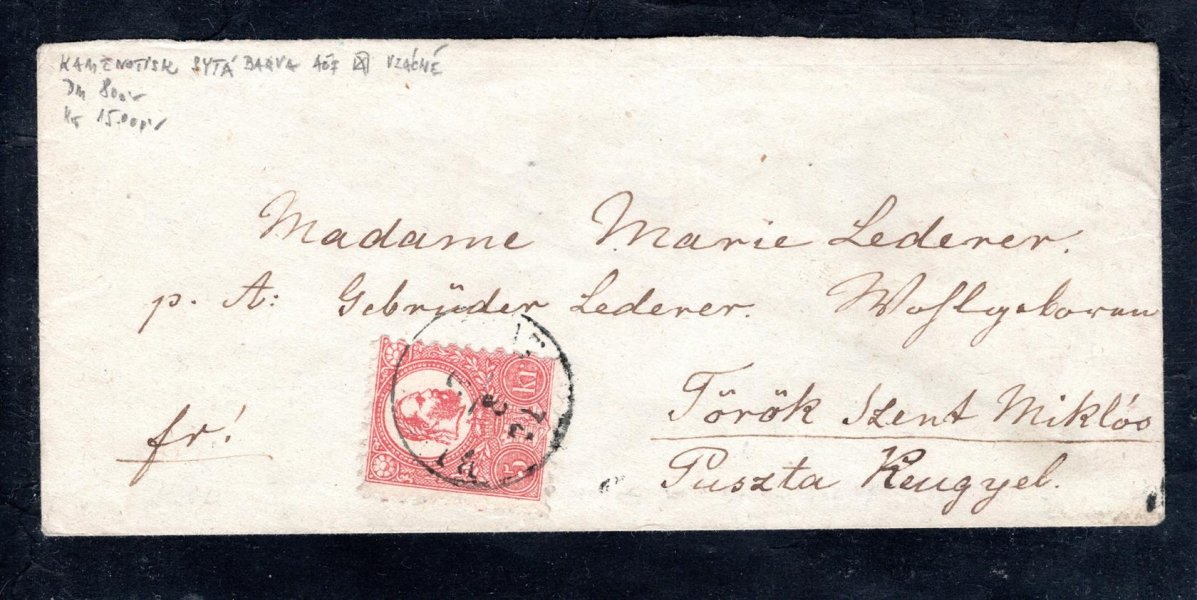 KAMENOTISK SYTÁ BARVA VZÁCNÉ
Dm 800,-
Kč 15.000,-
Madame Marie Lederer.
p. A: Gebrüder Lederer. Wohlgeboren
fr!
Török Szent Miklós
Puszta Kengyel.
5 kr